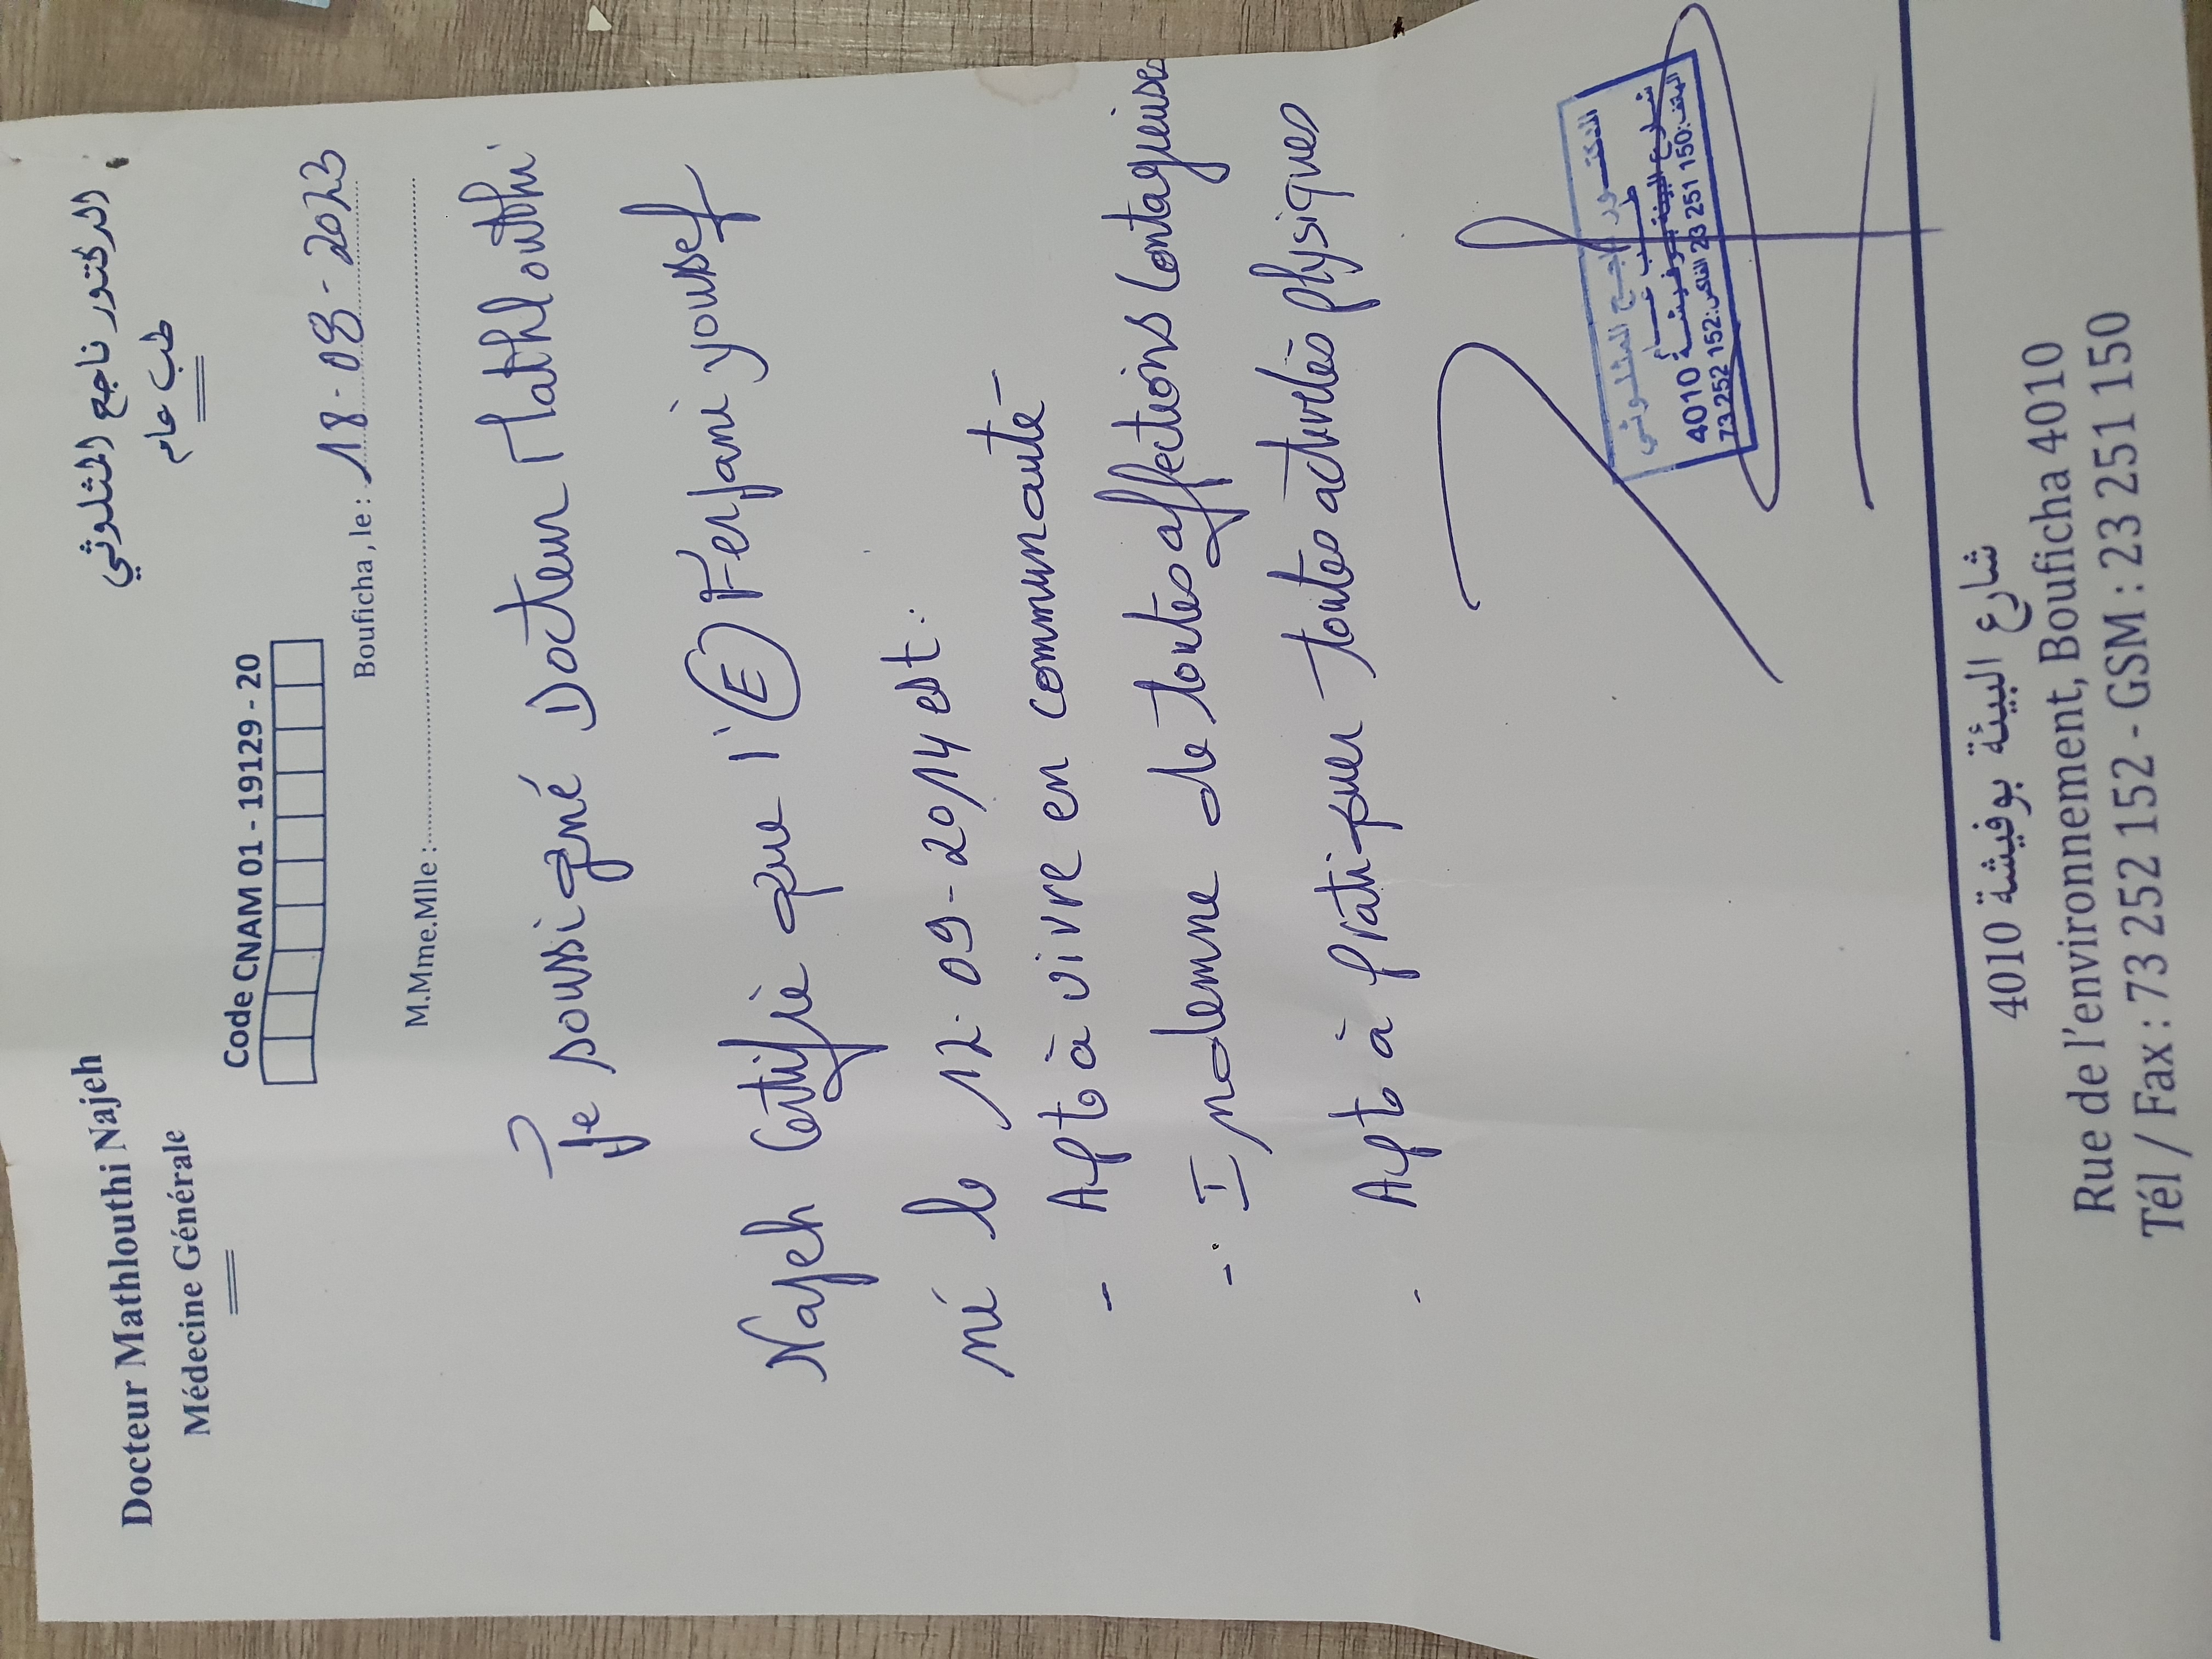 Docteur Mathlouthi Najeh
Médecine Générale
الدكتور ناجع المثلوثي
طب عام
Code CNAM 01 - 19129 - 20
Bouficha, le : 18-08-2023
M.Mme.Mlle :
Je soussigné Docteur Mathlouthi
Najeh Certifie que l'(E) Ferjani yousef
né le 12-09-2014 est :
- Apte à vivre en communauté -
- Indemne de toutes affections Contagieuses
- Apte à pratiquer toutes activités physiques
الدكتور ناجع المثلوثي
طب عام
شارع البيئة بوفيشة 4010
الهاتف: 150 251 23 الفاكس: 152 252 73
شارع البيئة بوفيشة 4010
Rue de l'environnement, Bouficha 4010
Tél / Fax : 73 252 152 - GSM : 23 251 150